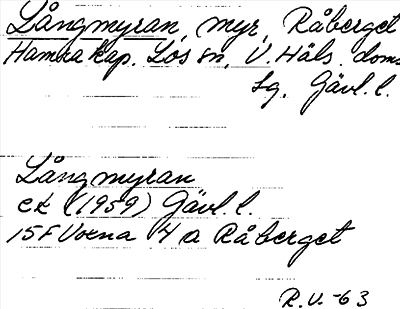 Långmyran, myr, Råberget
Hamra kap. Los sn, V. Häls. doms
sg, Gävl. l.
Långmyran
ek (1959) Gävl. l.
15F Voxna 4 a Råberget
R.V. -63